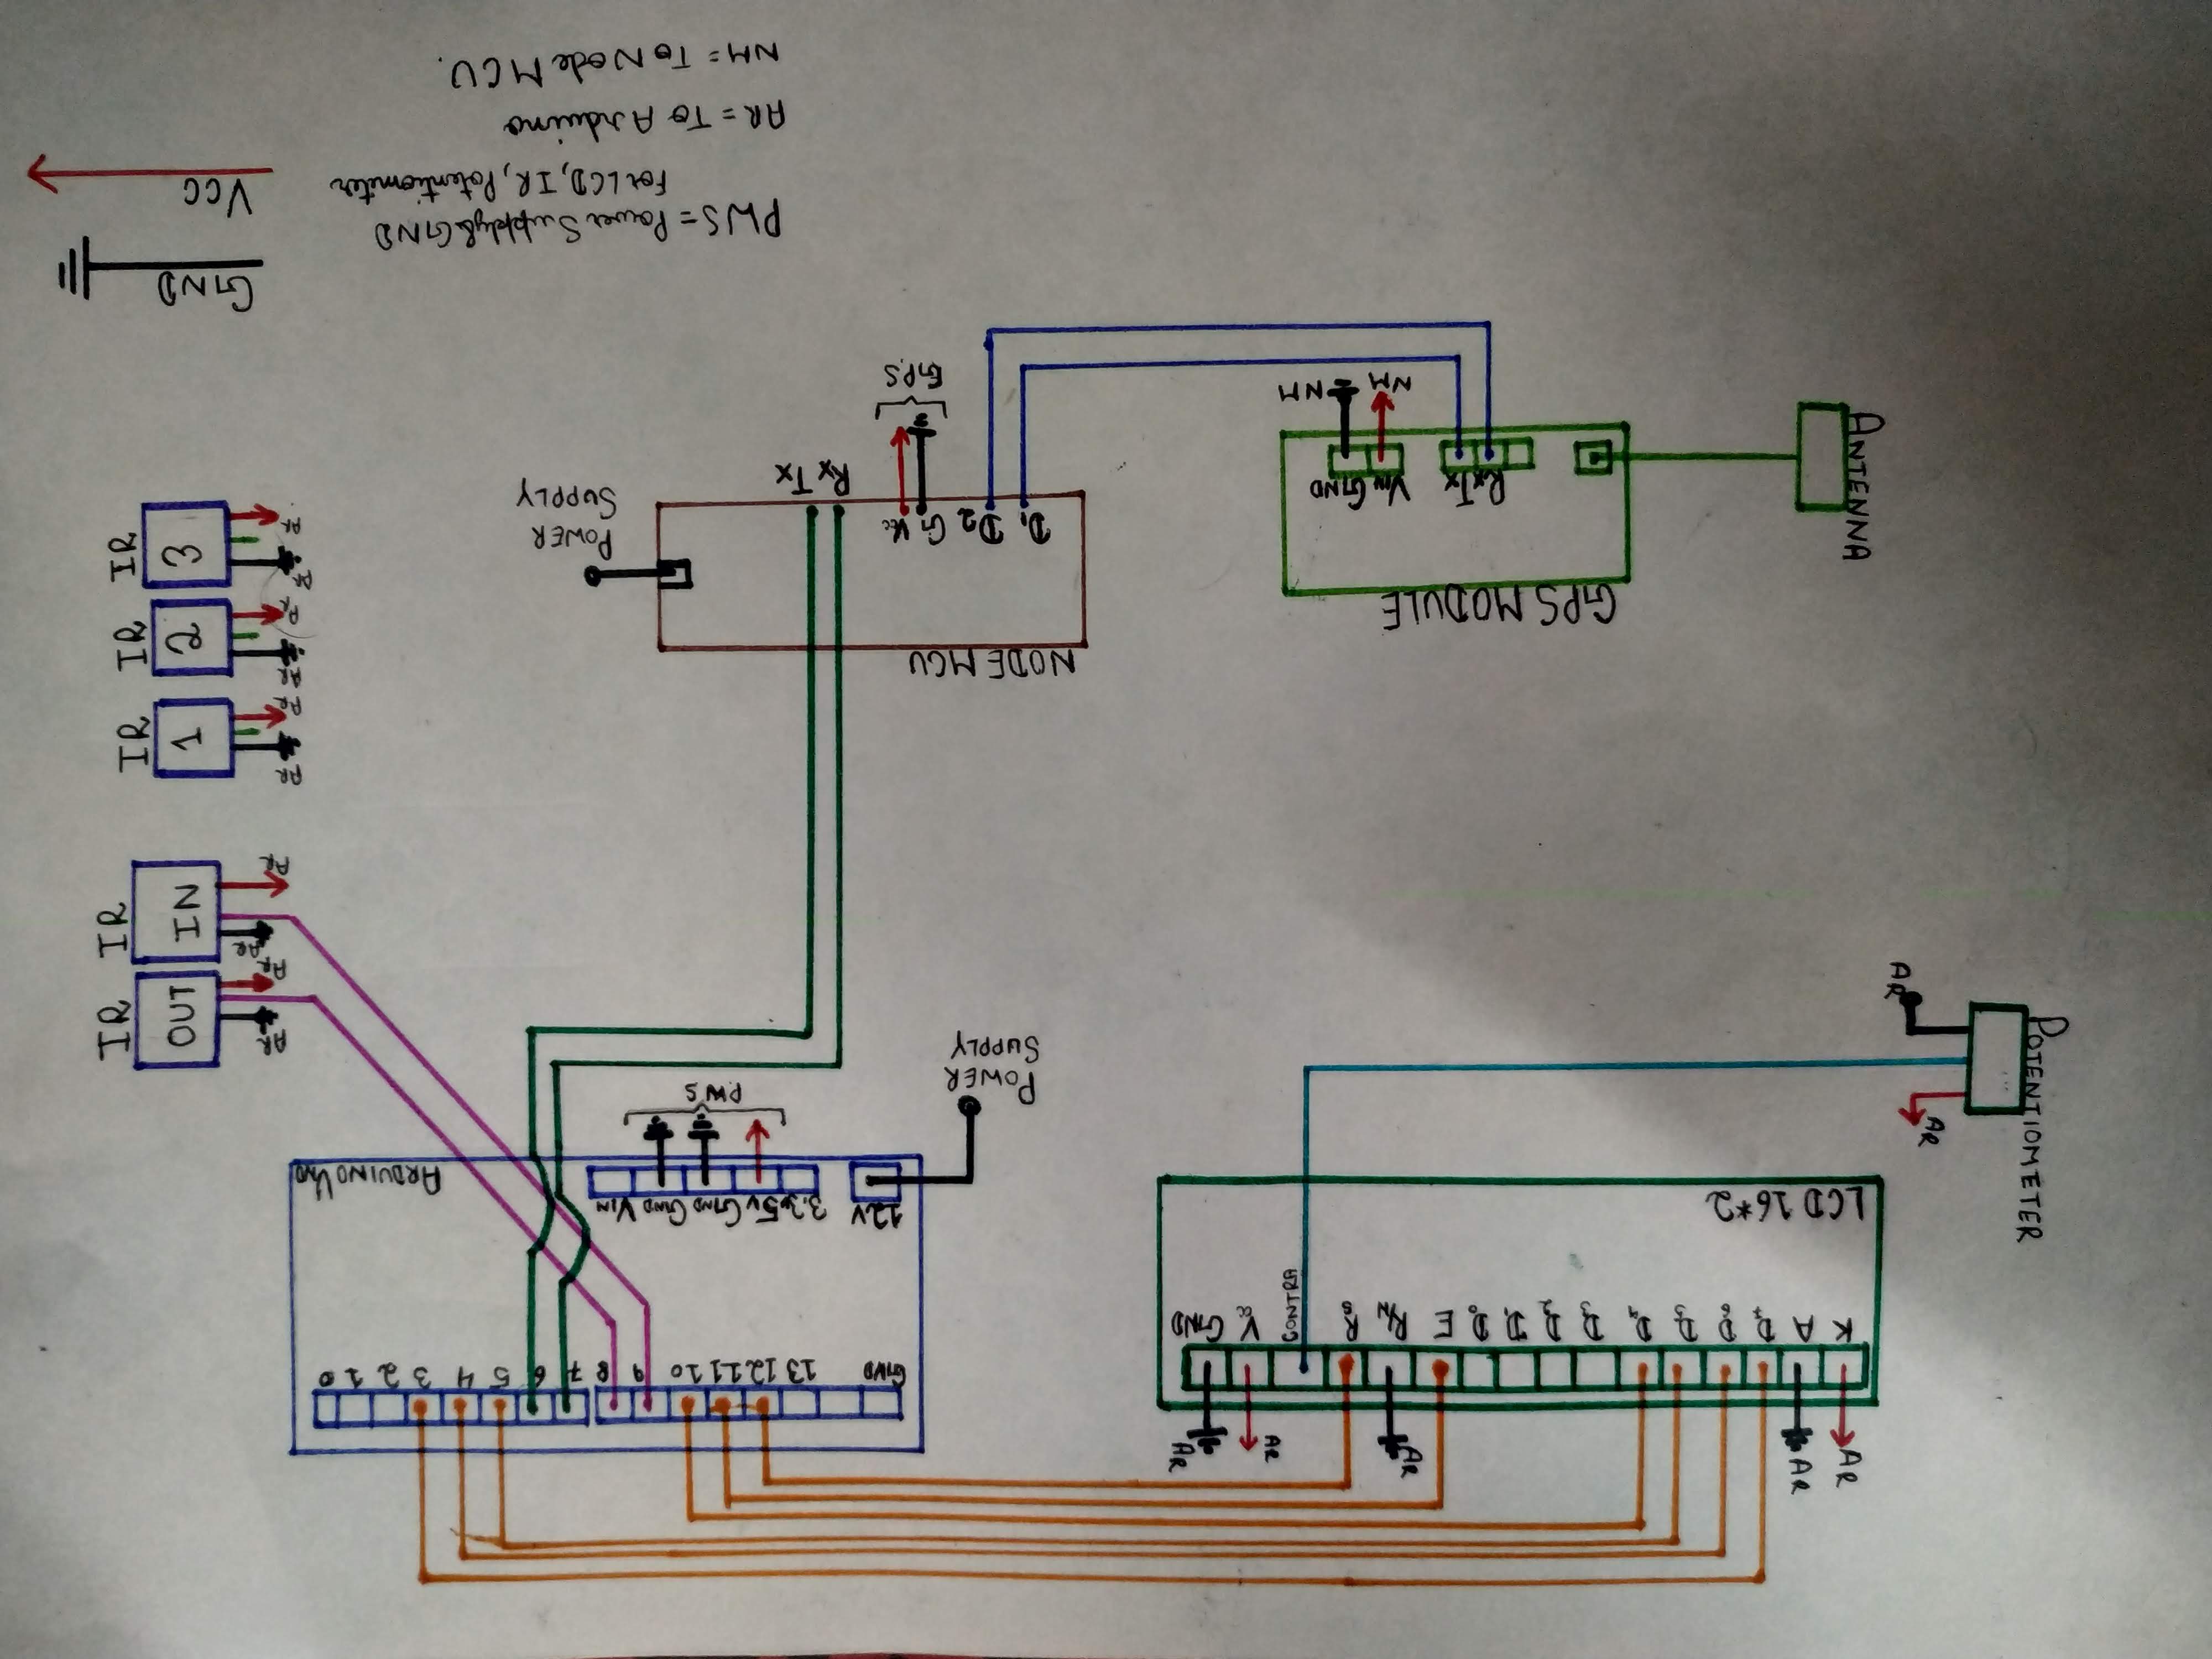 AR
AR
AR
AR
AR
K A D7 D6 D5 D4 D3 D2 D1 D0 E R/W RS CONTRA Vcc GND
LCD 16*2
GND 13 12 11 10 9 8 7 6 5 4 3 2 1 0
12V 3.3v 5v GND GND VIN
ARDUINO UNO
PWS
POWER
SUPPLY
POTENTIOMETER
AR
AR
AR
OUT
IR
AR
AR
IN
IR
AR
AR
1
IR
AR
AR
2
IR
AR
AR
3
IR
AR
NODE MCU
D1 D2 G Vcc
Rx Tx
GPS
POWER
SUPPLY
GPS MODULE
Rx Tx VIN GND
NM NM
ANTENNA
GND
VCC
PWS = Power Supply & GND
For LCD, IR, Potentiometer
AR = To Arduino
NM = To Node MCU.